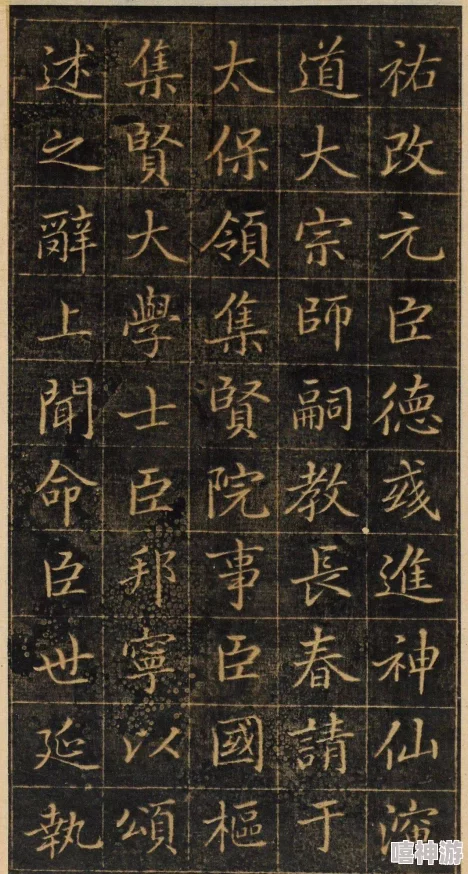 祐改元臣德彧進神仙演
道大宗師嗣教長春請于
太保領集賢院事臣國樞
集賢大學士臣邦寧以頌
述之辭上聞命臣世延執
嘻神游